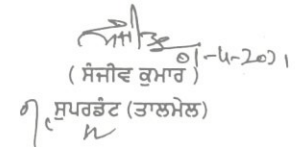 01-4-2021
( ਸੰਜੀਵ ਕੁਮਾਰ )
ਸੁਪਰਡੰਟ (ਤਾਲਮੇਲ)